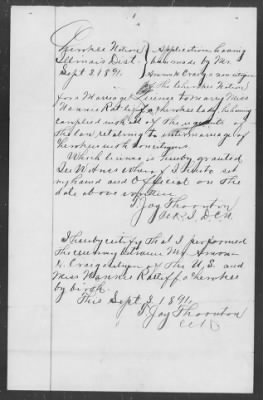 Cherokee Nation
Illinois Dist
Sept 3 1891.
Application having
been made by Mr.
Craig a citizen
of the Cherokee Nation
for a Marriage License to marry Miss
Nannie Ratliff a Cherokee lady & having
complied with all of the
the law relating to intermarriage of
Cherokees with
License is hereby granted
In Witness Whereof I hereto set
my hand and Official on the
date above written
T Jay Thornton
Clk I. D. C. N.
I hereby certify that I performed
the ceremony between Mr
Craig citizen of the U.S. and
Miss Nannie Ratliff a Cherokee
by birth.
This Sept 3 1891.
T Jay Thornton
Clk